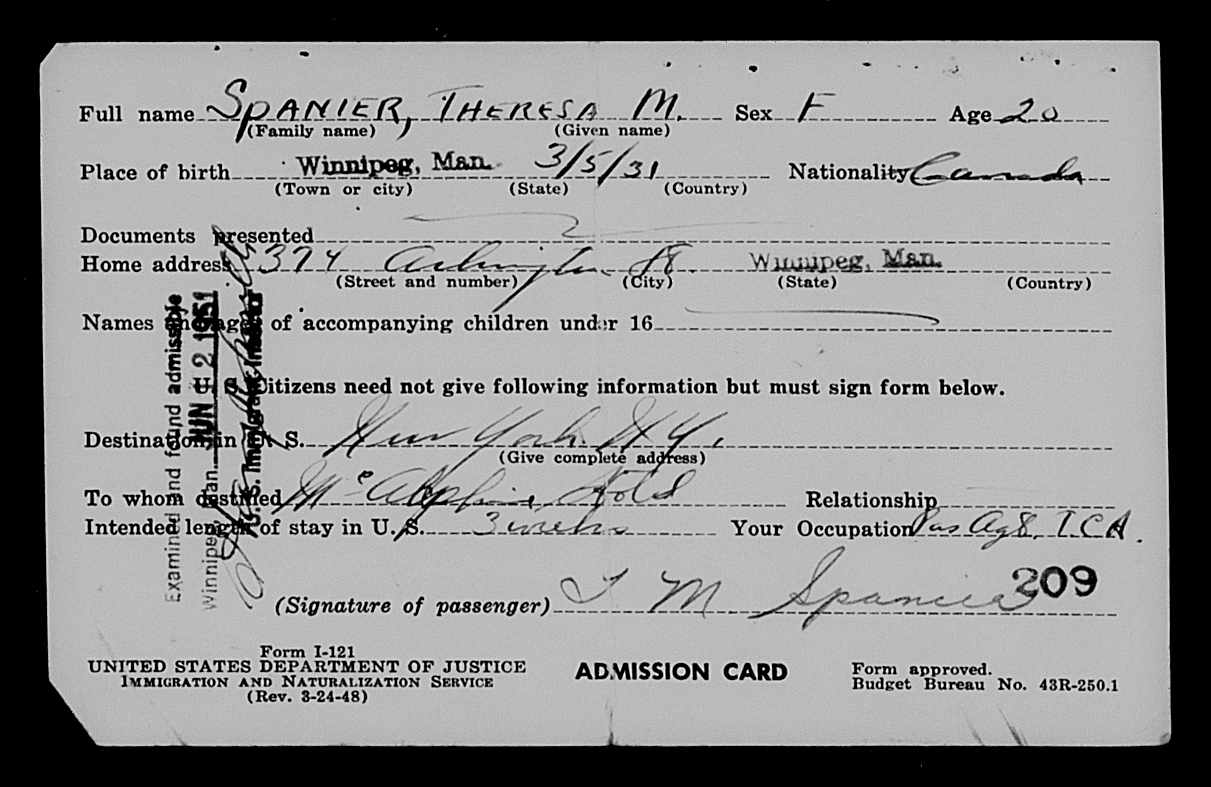 Full name SPANIER, THERESA M. Sex F Age 20
(Family name) (Given name)
Place of birth Winnipeg, Man. 3/5/31 Nationality Canada
(Town or city) (State) (Country)
Documents presented
Home address 374 Arlington St. Winnipeg, Man.
(Street and number) (City) (State) (Country)
Names and ages of accompanying children under 16
U. S. Citizens need not give following information but must sign form below.
Destination in U. S. New York N.Y.
(Give complete address)
To whom destined McAlpine Hotel Relationship
Intended length of stay in U. S. 3 weeks Your Occupation Pas Agt T.C.A.
(Signature of passenger) T M Spanier 209
Examined and found admissible
Winnipeg, Man. JUN 2 1951
U. S. Immigrant Inspector
Form I-121
UNITED STATES DEPARTMENT OF JUSTICE
IMMIGRATION AND NATURALIZATION SERVICE
(Rev. 3-24-48)
ADMISSION CARD
Form approved.
Budget Bureau No. 43R-250.1